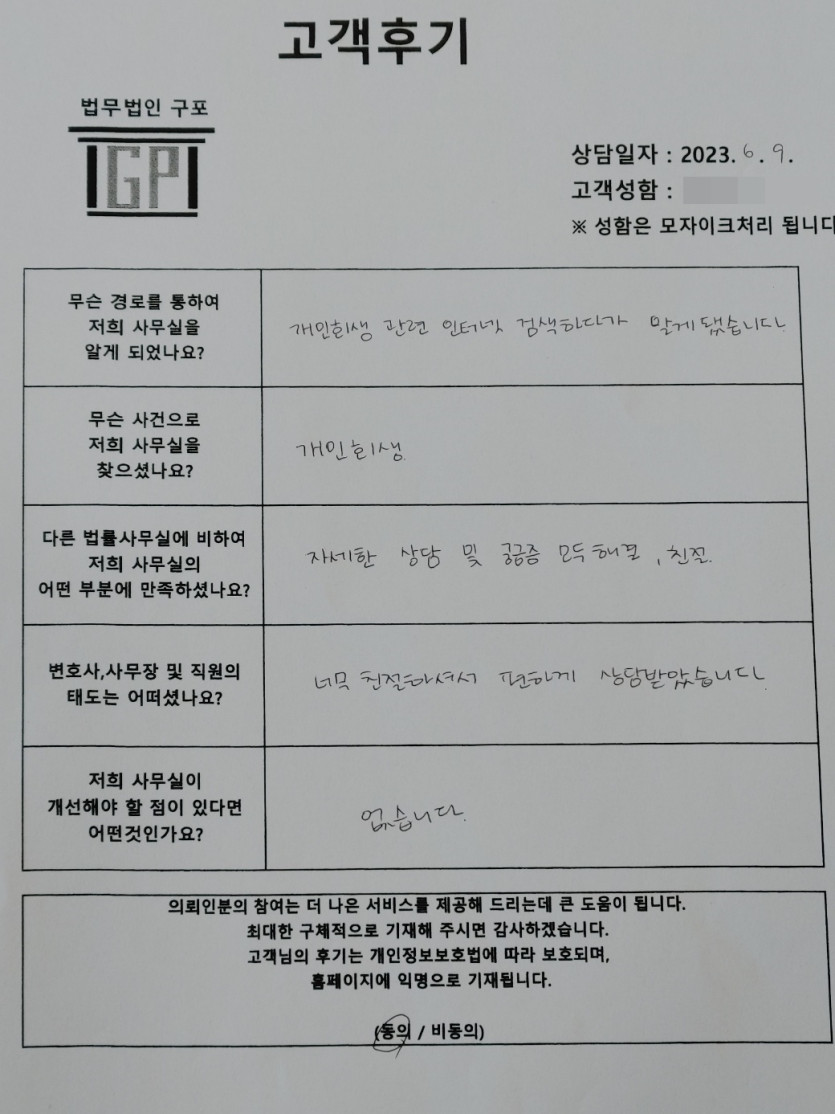 고객후기
법무법인 구포
GP
상담일자 : 2023. 6. 9.
고객성함 :
※ 성함은 모자이크처리 됩니다
무슨 경로를 통하여
저희 사무실을
알게 되었나요?
개인회생 관련 인터넷 검색하다가 알게됐습니다.
무슨 사건으로
저희 사무실을
찾으셨나요?
개인회생.
다른 법률사무실에 비하여
저희 사무실의
어떤 부분에 만족하셨나요?
자세한 상담 및 궁금증 모두 해결, 친절.
변호사,사무장 및 직원의
태도는 어떠셨나요?
너무 친절하셔서 편하게 상담받았습니다.
저희 사무실이
개선해야 할 점이 있다면
어떤것인가요?
없습니다.
의뢰인분의 참여는 더 나은 서비스를 제공해 드리는데 큰 도움이 됩니다.
최대한 구체적으로 기재해 주시면 감사하겠습니다.
고객님의 후기는 개인정보보호법에 따라 보호되며,
홈페이지에 익명으로 기재됩니다.
(동의 / 비동의)